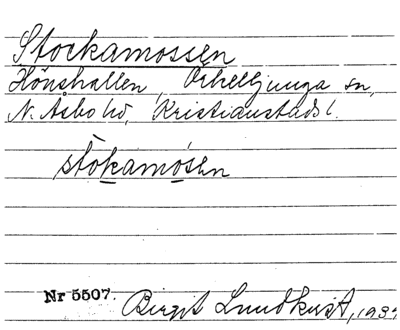 Stockamossen
Hönshallen, Örkelljunga sn,
N. Åsbo hd, Kristianstads l.
stòkamósen
Nr 5507. Birgit Lundkvist, 193